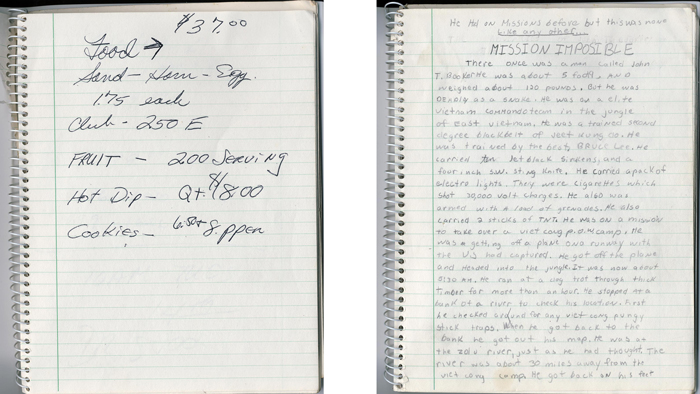 $37.00
Food →
Sand - Ham - Egg.
1.75 each
Club - 250 E
FRUIT - 200 Serving
Hot Dip - Qt. $18.00
Cookies -
He Had on Missions before but this was none
like any other...
MISSION IMPOSIBLE
There once was a man called John
T. Booker He was about 5 foot, AND
weighed about 130 pounds. But he was
DEADLY as a snake. He was on a elite
Vietnam commando team in the jungle
of East Vietnam. He was a trained second
degree blackbelt of Jeet Kung Do. He
was trained by the best, BRUCE Lee. He
carried ten Jet black and a
four inch knife. He carried a pack of
electro lights. They were cigarettes which
shot 30,000 volt charges. He also was
armed with a load of grenades. He also
carried 2 sticks of TNT. He was on a mission
to take over a viet cong p.o.w camp. He
was getting off a plane on a runway with
the U.S had captured. He got off the plane
and headed into the jungle. It was now about
0130 AM. He ran at a jog trot through thick
Timber for more than an hour. He stopped at a
bank of a river to check his location. First
he checked around for any viet cong pungy
stick traps. When he got back to the
bank he got out his map. He was at
the river, just as he had thought. The
river was about 30 miles away from the
viet cong camp. He got back on his feet